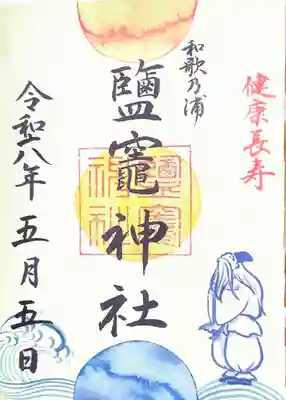 健康長寿
和歌乃浦
鹽竈神社
令和八年五月五日